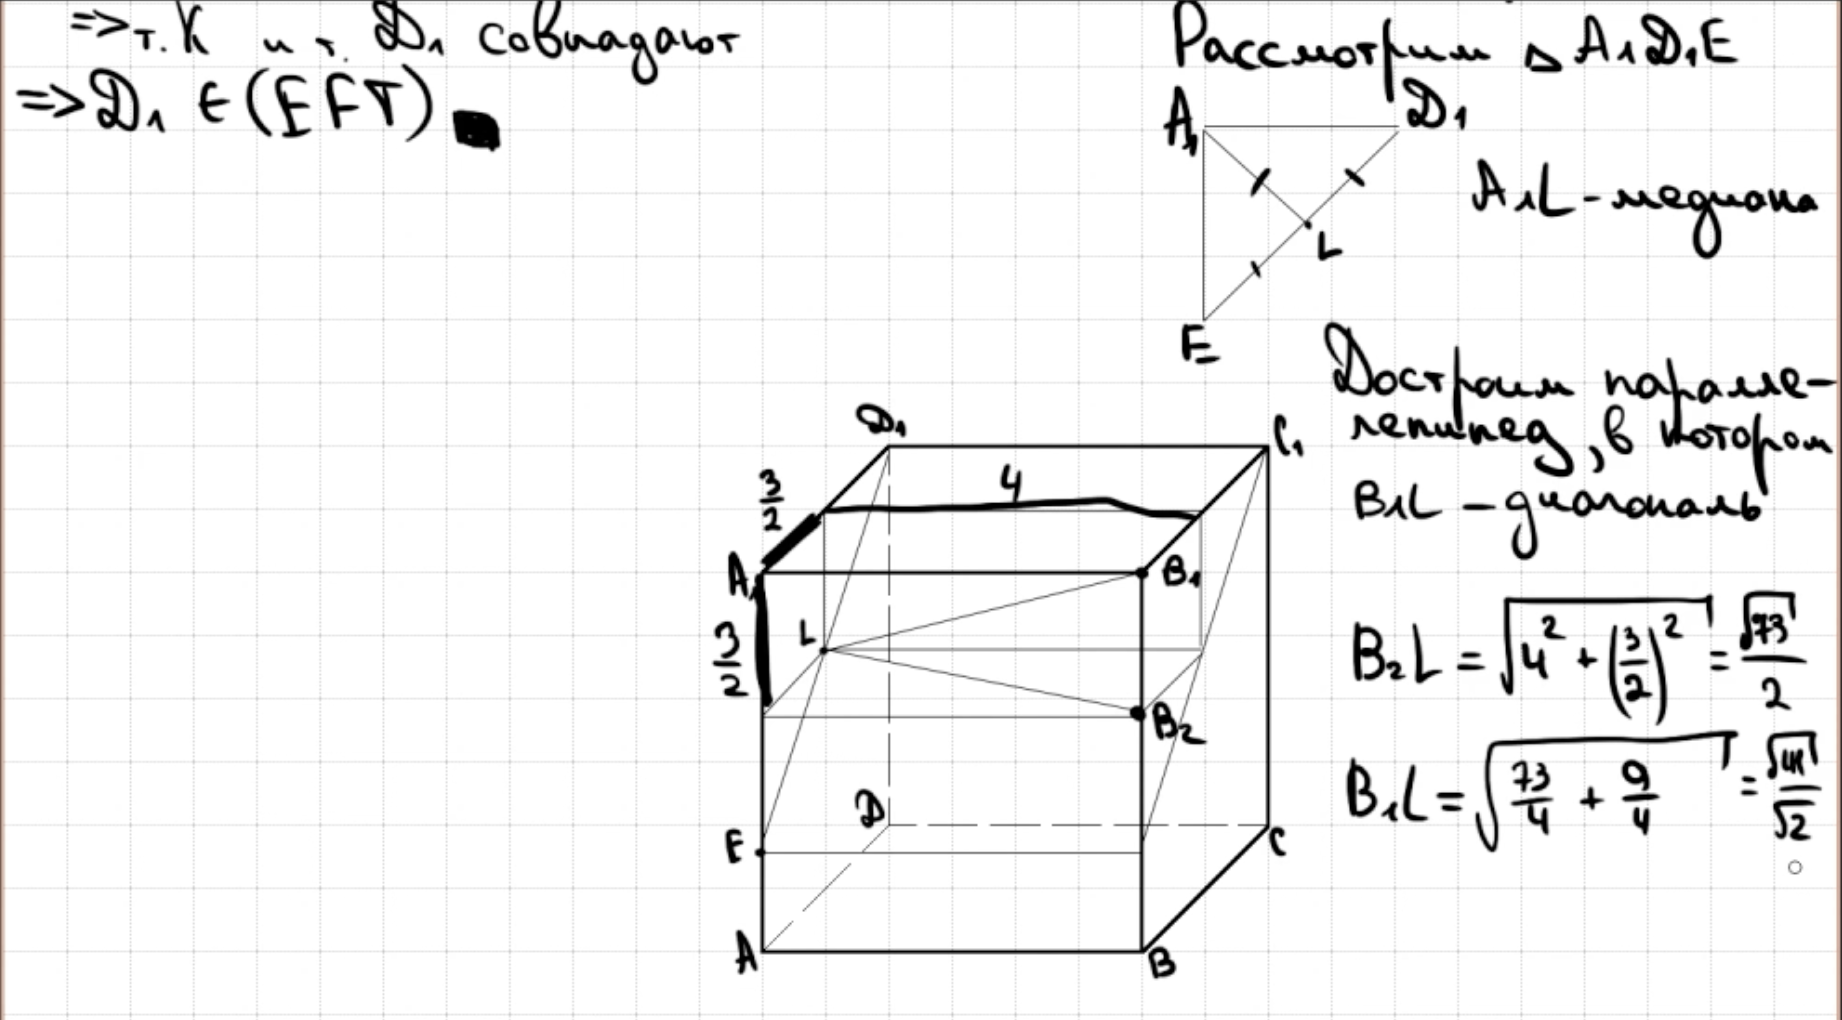 => т. К и т. D₁ совпадают
=> D₁ ∈ (EFT)
Рассмотрим △ A₁D₁E
A₁
D₁
L
E
A₁L - медиана
Достроим паралле-
лепипед, в котором
B₁L - диагональ
B₂L = √(4² + (3/2)²) = √73/2
B₁L = √(73/4 + 9/4) = √41/√2
D₁
C₁
3/2
4
A₁
B₁
3/2
L
B₂
D
E
C
A
B